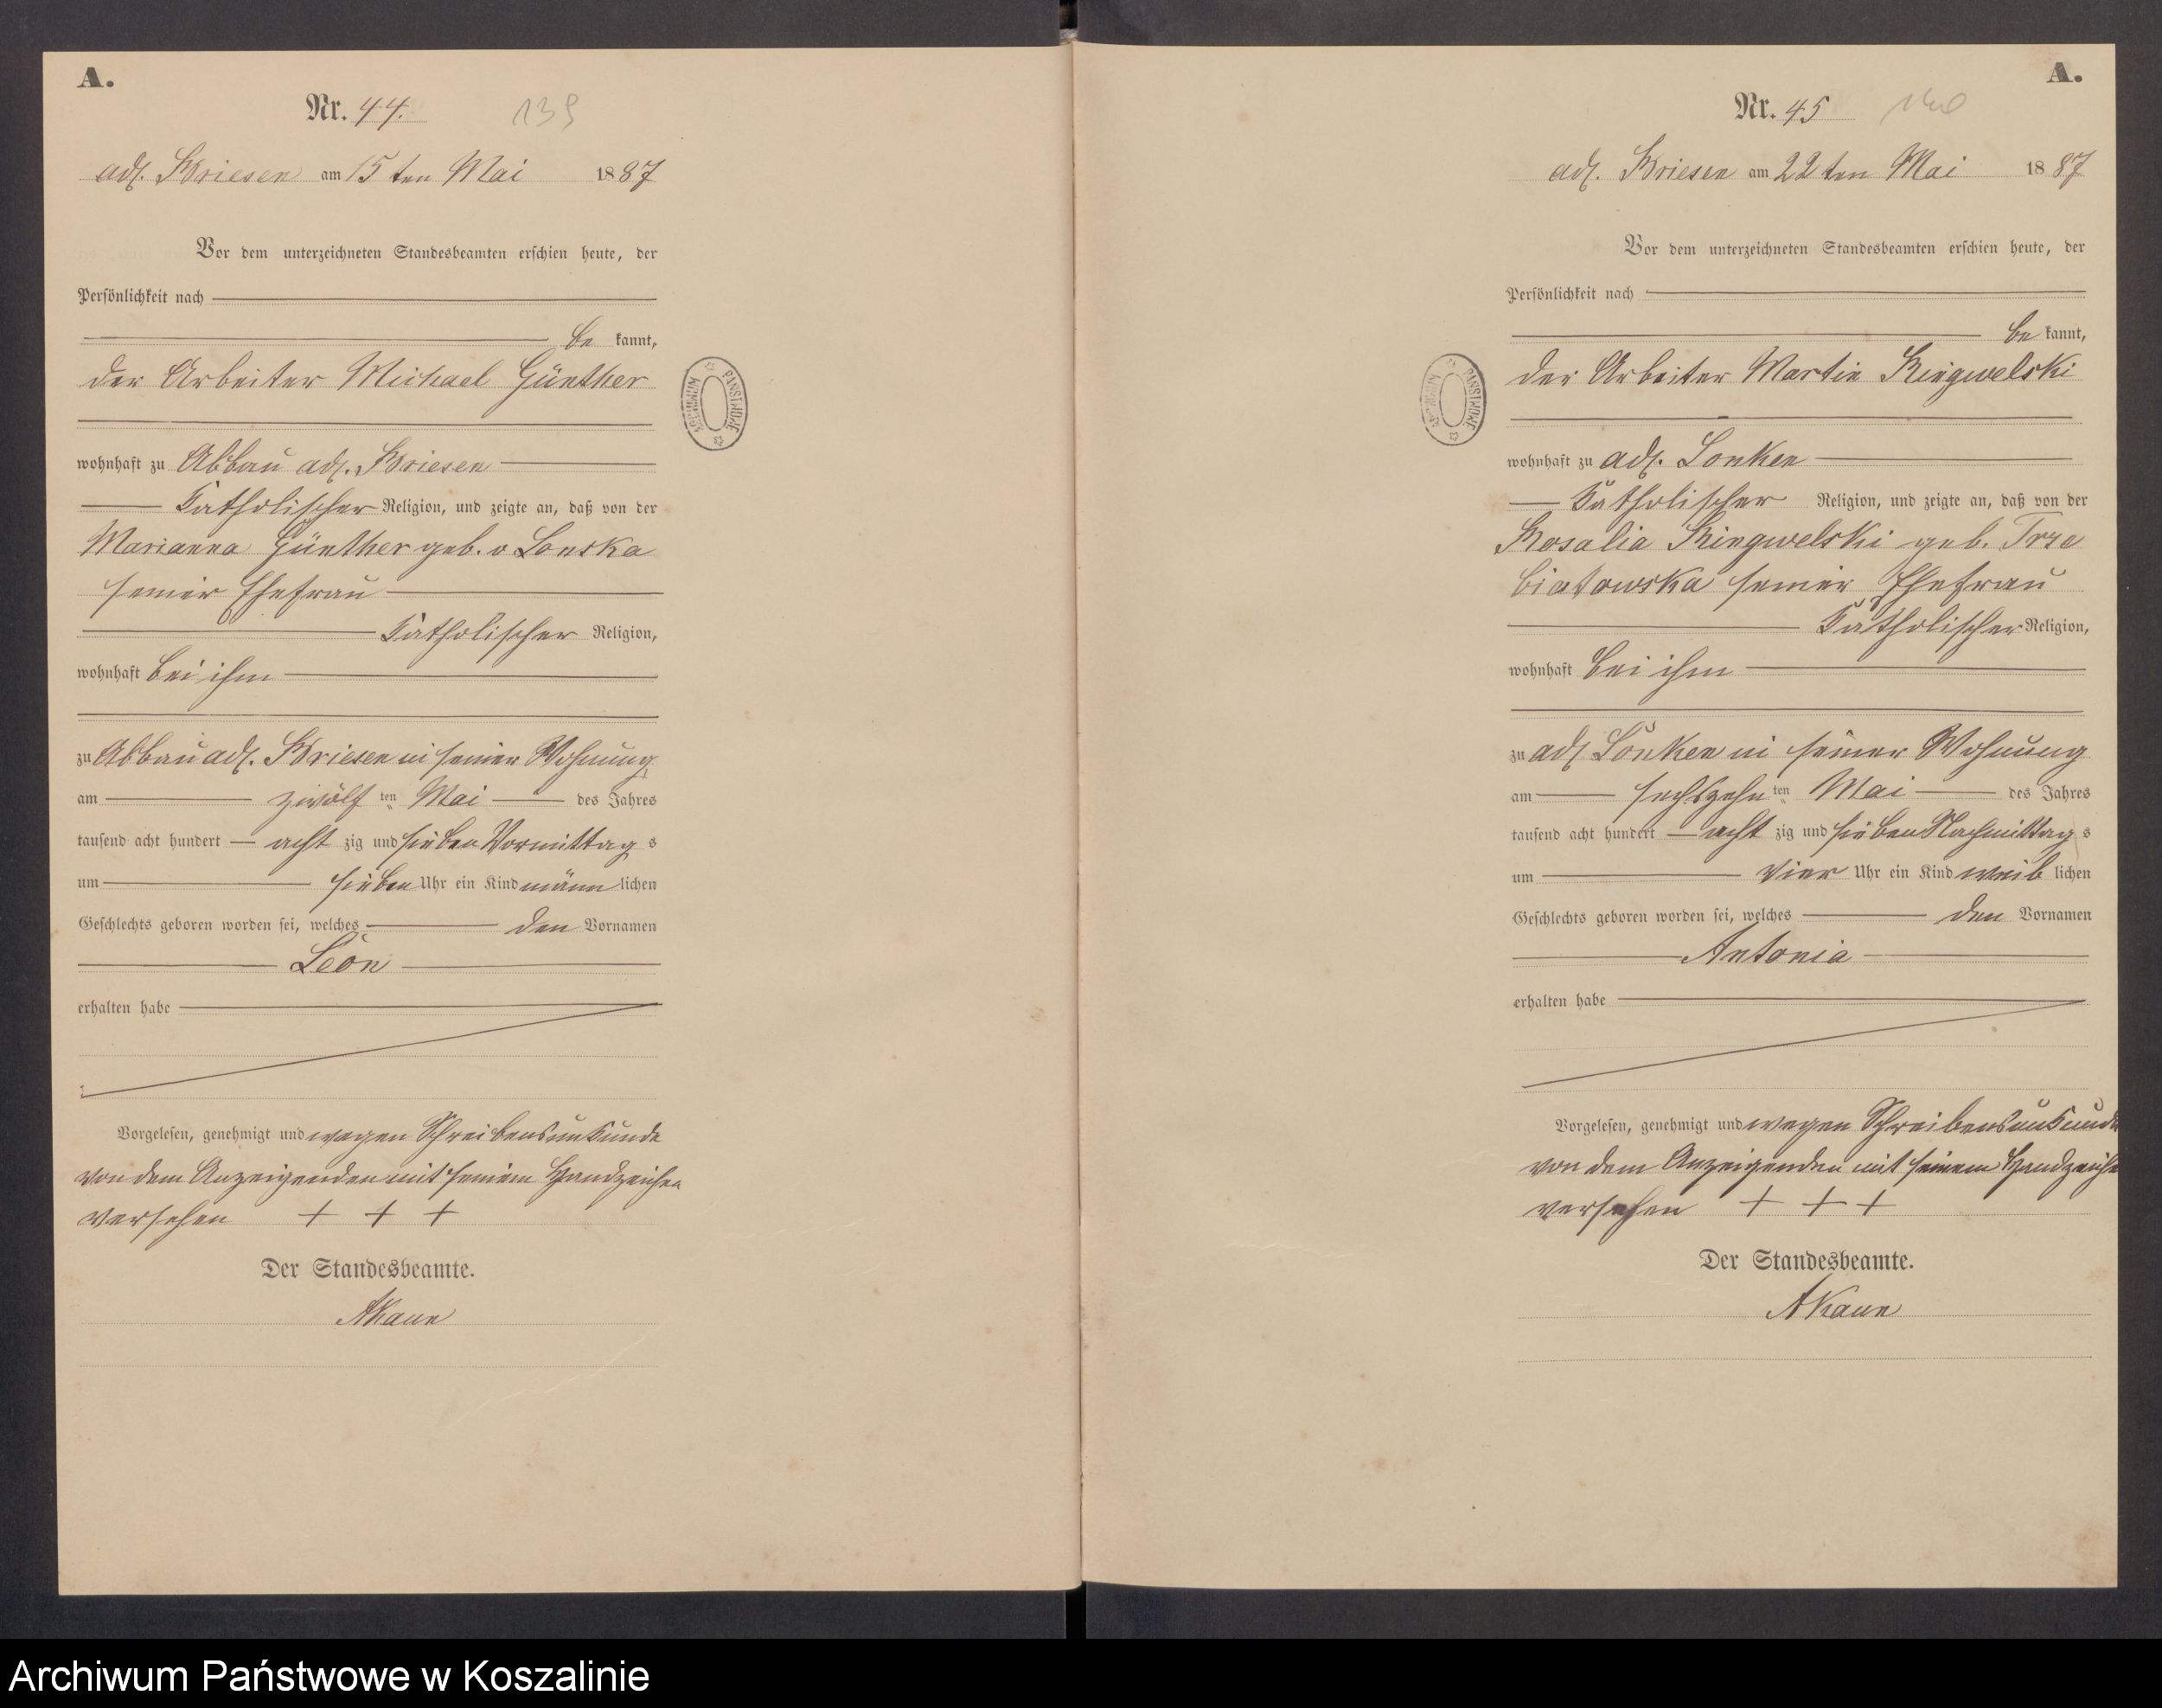 A.
Nr. 44.
139
adl. Briesen am 15ten Mai 1887
Vor dem unterzeichneten Standesbeamten erschien heute, der
Persönlichkeit nach
be kannt,
der Arbeiter Michael Günther
wohnhaft zu Abbau adl. Briesen
katholischer Religion, und zeigte an, daß von der
Marianna Günther geb. v Lonska
seiner Ehefrau
katholischer Religion,
wohnhaft bei ihm
zu Abbau adl. Briesen in seiner Wohnung
am zwölf ten Mai des Jahres
tausend acht hundert acht zig und sieben Vormittag s
um sieben Uhr ein Kind männ lichen
Geschlechts geboren worden sei, welches den Vornamen
Leon
erhalten habe
Vorgelesen, genehmigt und wegen Schreibensunkunde
von dem Anzeigenden mit seinem Handzeichen
versehen + + +
Der Standesbeamte.
AKaun
ARCHIWUM PAŃSTWOWE
A.
Nr. 45
140
adl. Briesen am 22ten Mai 1887
Vor dem unterzeichneten Standesbeamten erschien heute, der
Persönlichkeit nach
be kannt,
der Arbeiter Martin Ringwelski
wohnhaft zu adl. Lonken
katholischer Religion, und zeigte an, daß von der
Rosalia Ringwelski geb. Trze
biatowska seiner Ehefrau
katholischer Religion,
wohnhaft bei ihm
zu adl Lonken in seiner Wohnung
am sechszehn ten Mai des Jahres
tausend acht hundert acht zig und sieben Nachmittag s
um vier Uhr ein Kind weib lichen
Geschlechts geboren worden sei, welches den Vornamen
Antonia
erhalten habe
Vorgelesen, genehmigt und wegen Schreibensunkunde
von dem Anzeigenden mit seinem Handzeiche
versehen + + +
Der Standesbeamte.
AKaun
ARCHIWUM PAŃSTWOWE
Archiwum Państwowe w Koszalinie